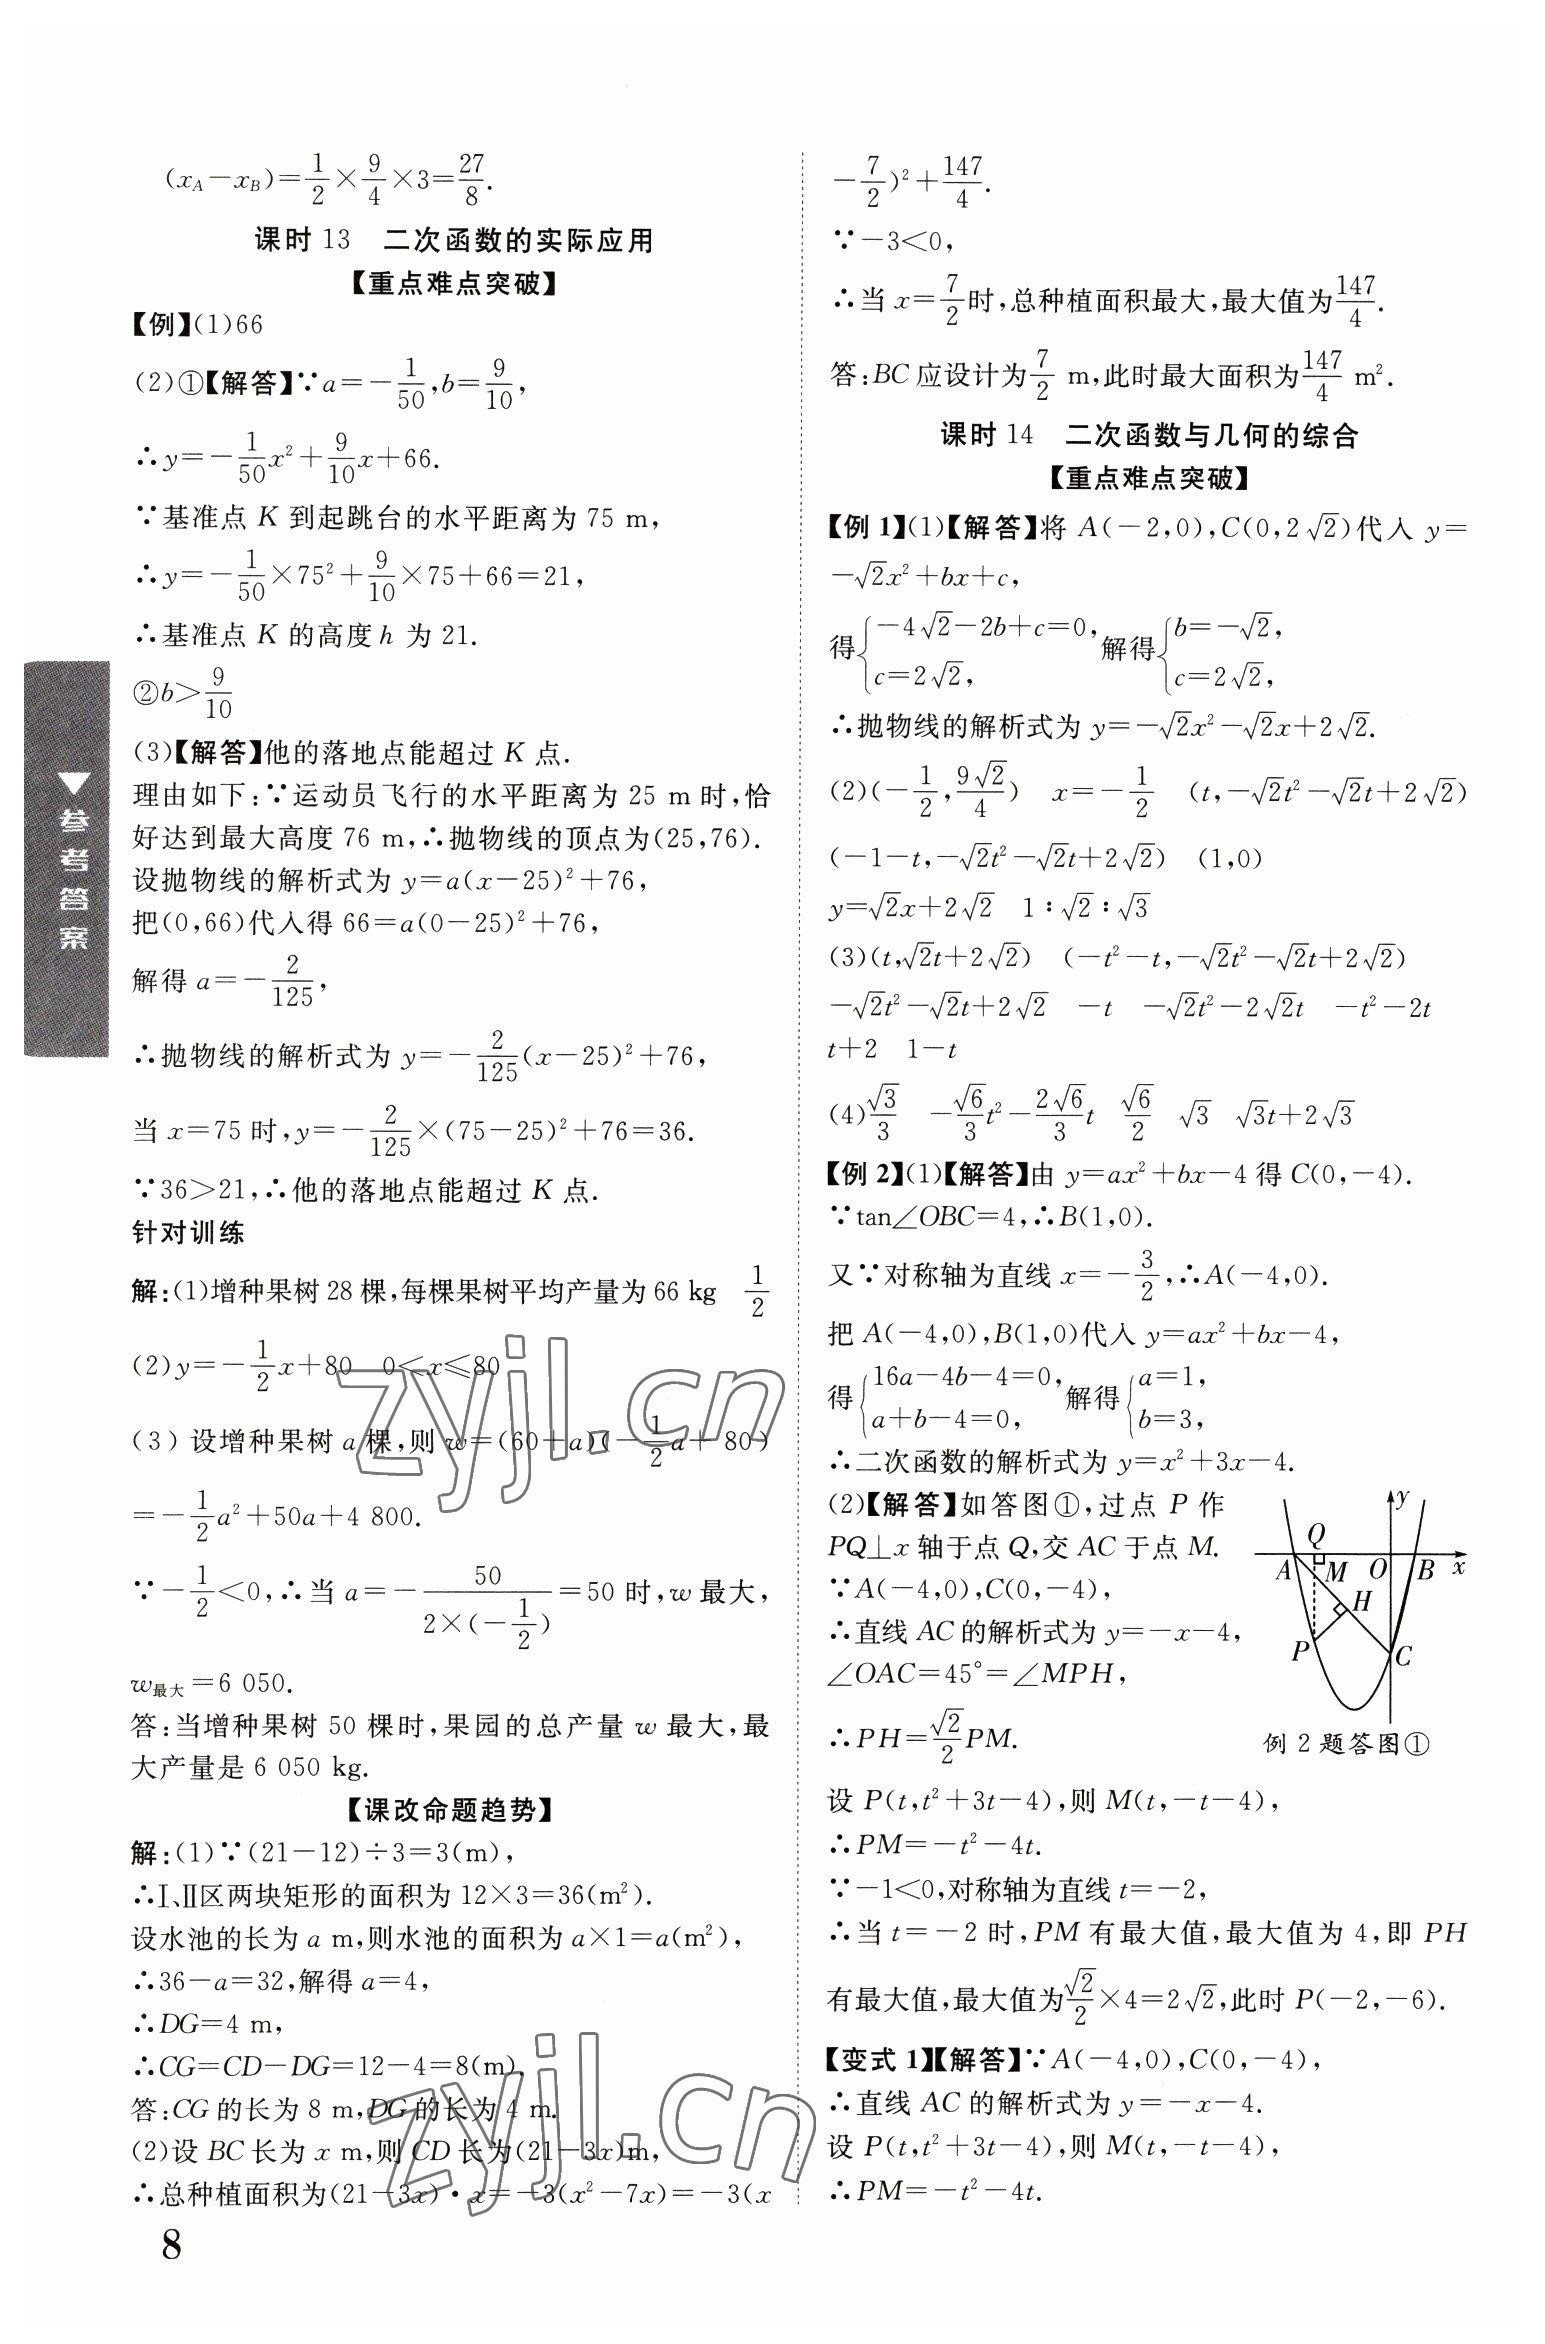 (x_A－x_B)＝1/2×9/4×3＝27/8.
课时 13　二次函数的实际应用
【重点难点突破】
【例】(1)66
(2)①【解答】∵a＝－1/50,b＝9/10,
∴y＝－1/50x²＋9/10x＋66.
∵基准点 K 到起跳台的水平距离为 75 m,
∴y＝－1/50×75²＋9/10×75＋66＝21,
∴基准点 K 的高度 h 为 21.
②b＞9/10
(3)【解答】他的落地点能超过 K 点.
理由如下:∵运动员飞行的水平距离为 25 m 时,恰
好达到最大高度 76 m,∴抛物线的顶点为(25,76).
设抛物线的解析式为 y＝a(x－25)²＋76,
把(0,66)代入得 66＝a(0－25)²＋76,
解得 a＝－2/125,
∴抛物线的解析式为 y＝－2/125(x－25)²＋76,
当 x＝75 时,y＝－2/125×(75－25)²＋76＝36.
∵36＞21,∴他的落地点能超过 K 点.
针对训练
解:(1)增种果树 28 棵,每棵果树平均产量为 66 kg　1/2
(2)y＝－1/2x＋80　0＜x≤80
(3)设增种果树 a 棵,则 w＝(60＋a)(－1/2a＋80)
＝－1/2a²＋50a＋4 800.
∵－1/2＜0,∴当 a＝－50/(2×(－1/2))＝50 时,w 最大,
w最大＝6 050.
答:当增种果树 50 棵时,果园的总产量 w 最大,最
大产量是 6 050 kg.
【课改命题趋势】
解:(1)∵(21－12)÷3＝3(m),
∴Ⅰ、Ⅱ区两块矩形的面积为 12×3＝36(m²).
设水池的长为 a m,则水池的面积为 a×1＝a(m²),
∴36－a＝32,解得 a＝4,
∴DG＝4 m,
∴CG＝CD－DG＝12－4＝8(m).
答:CG 的长为 8 m,DG 的长为 4 m.
(2)设 BC 长为 x m,则 CD 长为(21－3x)m,
∴总种植面积为(21－3x)·x＝－3(x²－7x)＝－3(x
8
▼参考答案
－7/2)²＋147/4.
∵－3＜0,
∴当 x＝7/2时,总种植面积最大,最大值为147/4.
答:BC 应设计为7/2 m,此时最大面积为147/4 m².
课时 14　二次函数与几何的综合
【重点难点突破】
【例 1】(1)【解答】将 A(－2,0),C(0,2√2)代入 y＝
－√2x²＋bx＋c,
得{－4√2－2b＋c＝0, c＝2√2, 解得{b＝－√2, c＝2√2,
∴抛物线的解析式为 y＝－√2x²－√2x＋2√2.
(2)(－1/2,9√2/4)　x＝－1/2　(t,－√2t²－√2t＋2√2)
(－1－t,－√2t²－√2t＋2√2)　(1,0)
y＝√2x＋2√2　1∶√2∶√3
(3)(t,√2t＋2√2)　(－t²－t,－√2t²－√2t＋2√2)
－√2t²－√2t＋2√2　－t　－√2t²－2√2t　－t²－2t
t＋2　1－t
(4)√3/3　－√6/3t²－2√6/3t　√6/2　√3　√3t＋2√3
【例 2】(1)【解答】由 y＝ax²＋bx－4 得 C(0,－4).
∵tan∠OBC＝4,∴B(1,0).
又∵对称轴为直线 x＝－3/2,∴A(－4,0).
把 A(－4,0),B(1,0)代入 y＝ax²＋bx－4,
得{16a－4b－4＝0, a＋b－4＝0, 解得{a＝1, b＝3,
∴二次函数的解析式为 y＝x²＋3x－4.
(2)【解答】如答图①,过点 P 作
PQ⊥x 轴于点 Q,交 AC 于点 M.
∵A(－4,0),C(0,－4),
∴直线 AC 的解析式为 y＝－x－4,
∠OAC＝45°＝∠MPH,
∴PH＝√2/2PM.
y
Q
A M O B x
H
P C
例 2 题答图①
设 P(t,t²＋3t－4),则 M(t,－t－4),
∴PM＝－t²－4t.
∵－1＜0,对称轴为直线 t＝－2,
∴当 t＝－2 时,PM 有最大值,最大值为 4,即 PH
有最大值,最大值为√2/2×4＝2√2,此时 P(－2,－6).
【变式 1】【解答】∵A(－4,0),C(0,－4),
∴直线 AC 的解析式为 y＝－x－4.
设 P(t,t²＋3t－4),则 M(t,－t－4),
∴PM＝－t²－4t.
zyjl.cn
zyjl.cn